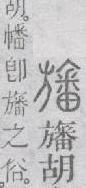 旛旛胡
胡。幡卽旛之俗。